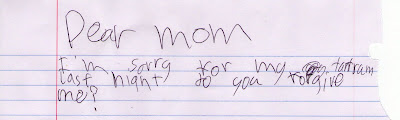 Dear mom
I'm sorry for my tantram
last night do you forgive
me?